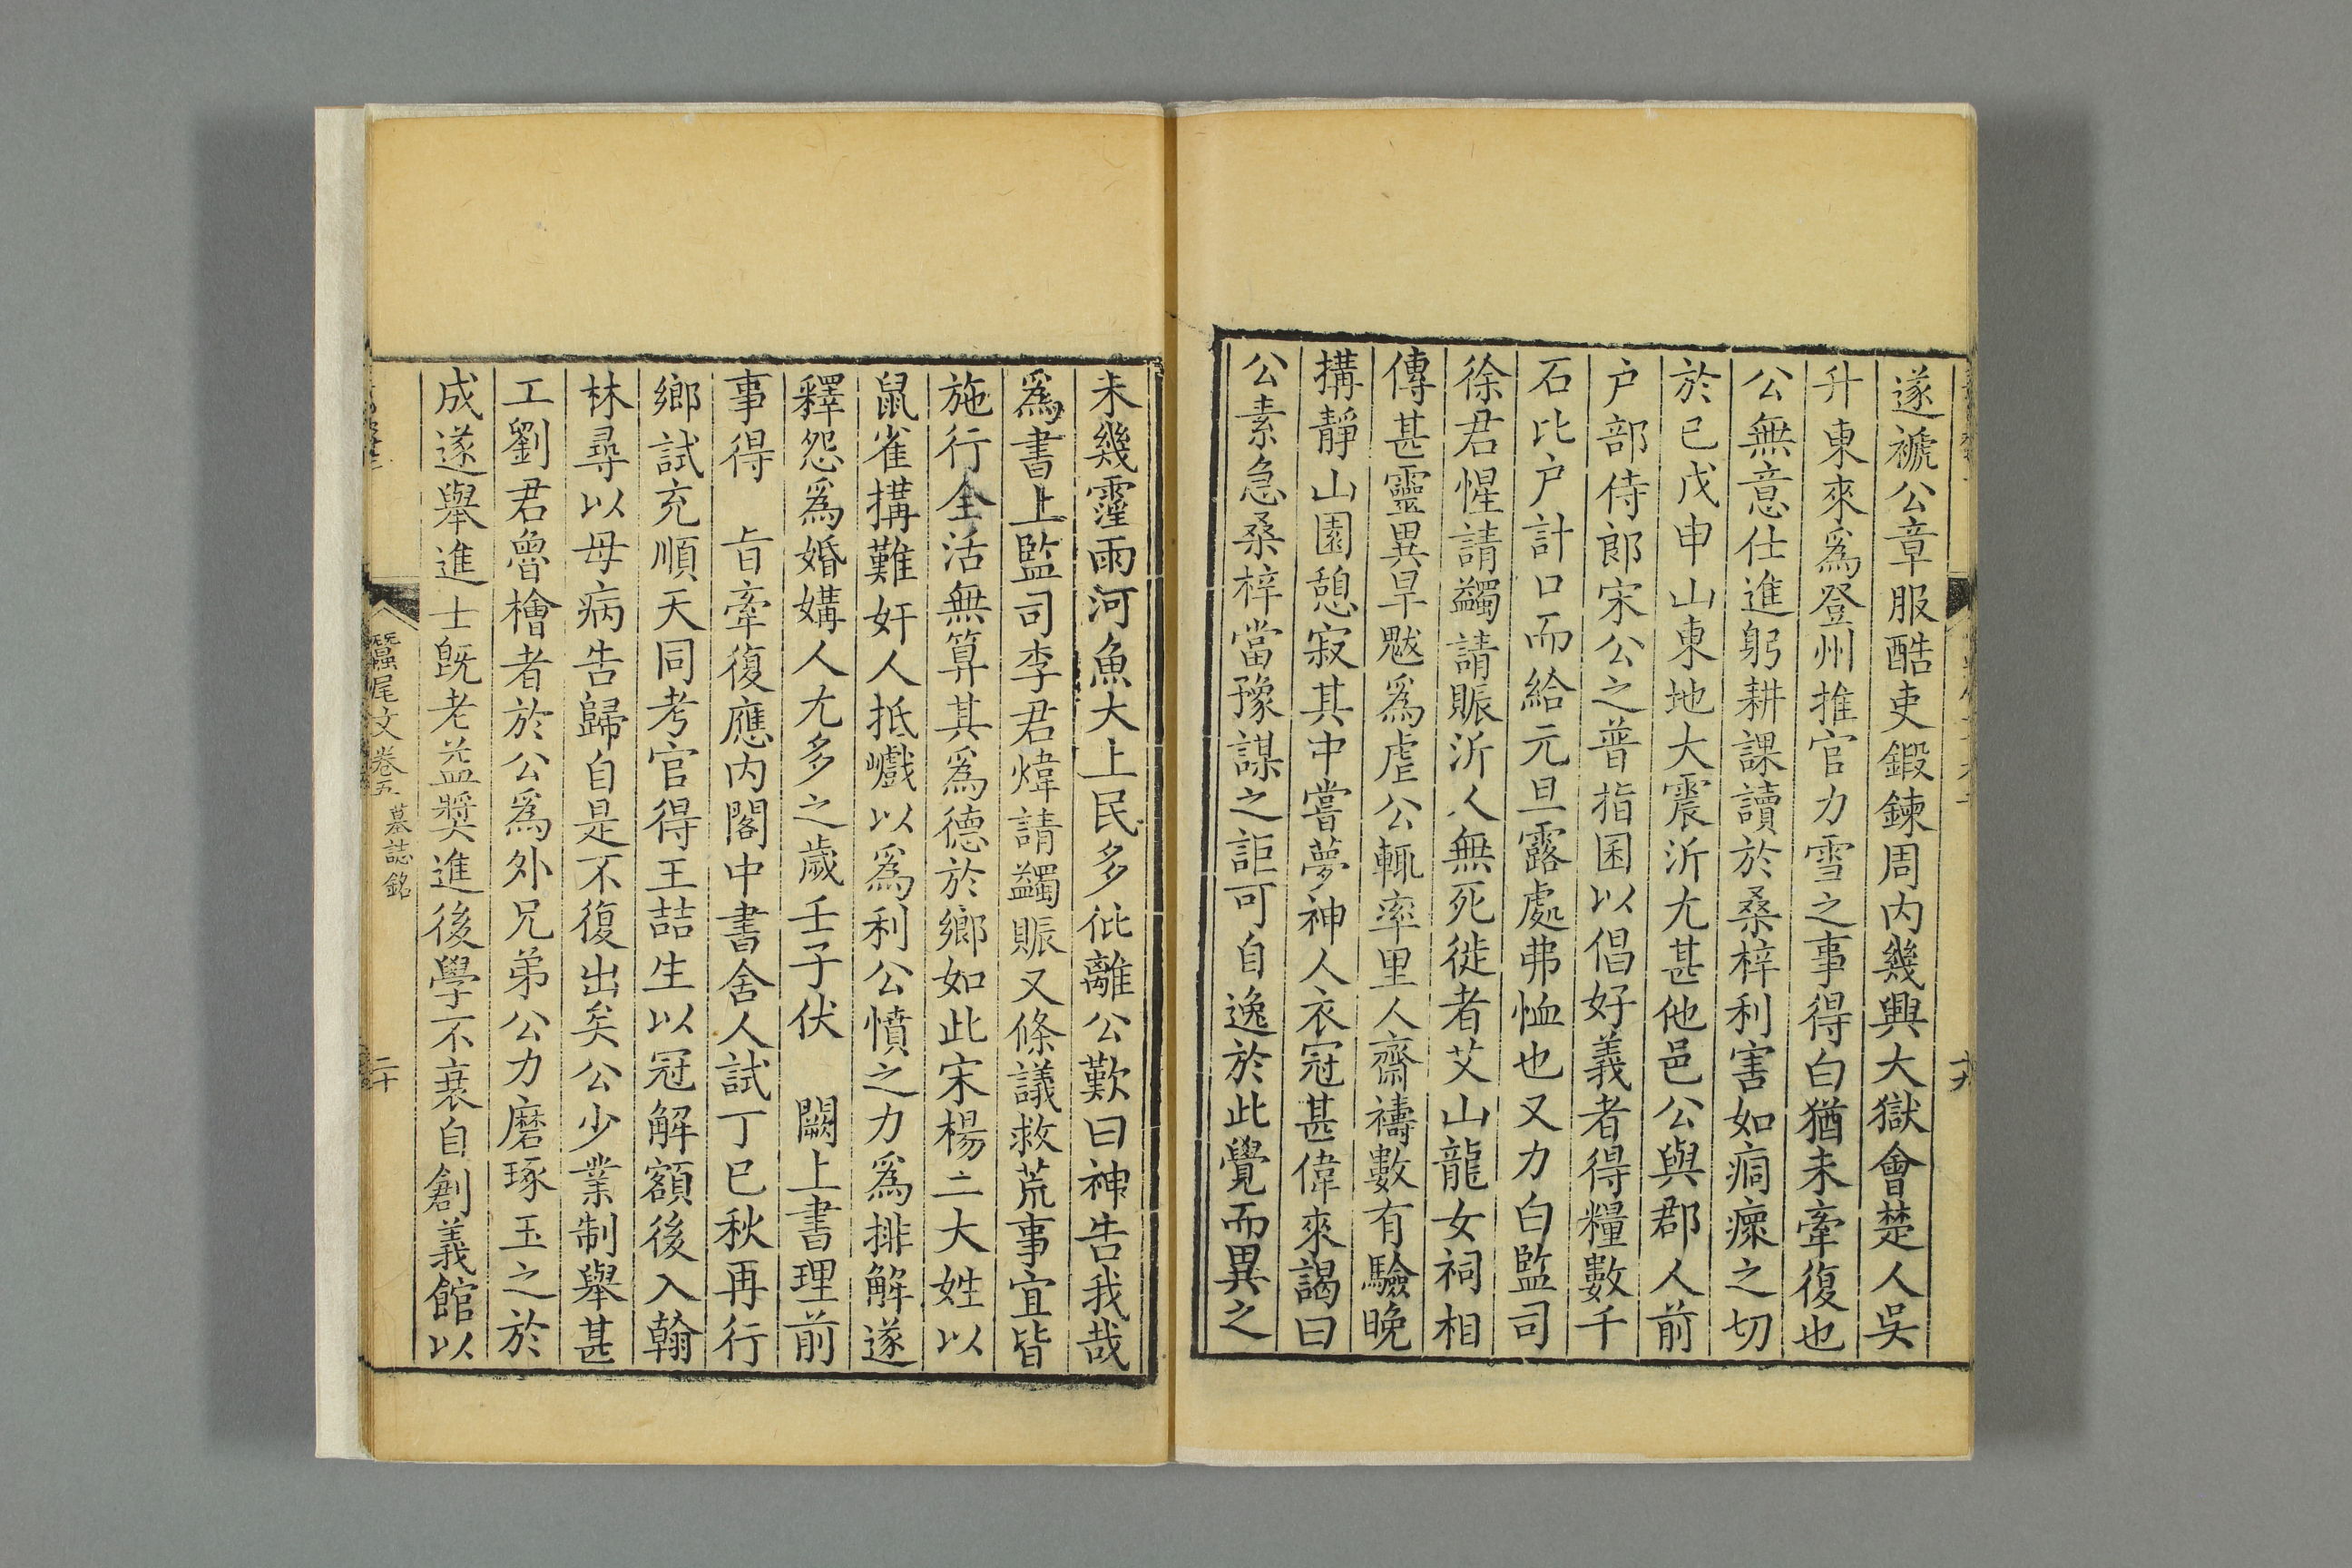 遂褫公章服酷吏鍛鍊周内幾興大獄會楚人吳
升東來爲登州推官力雪之事得白猶未牽復也
公無意仕進躬耕課讀於桑梓利害如痌瘝之切
於已戊申山東地大震沂尤甚他邑公與郡人前
户部侍郎宋公之普指囷以倡好義者得糧數千
石比户計口而給元旦露處弗恤也又力白監司
徐君惺請蠲請賑沂人無死徙者艾山龍女祠相
傳甚靈異旱魃爲虐公輒率里人齋禱數有驗晚
搆靜山園憩寂其中嘗夢神人衣冠甚偉來謁曰
公素急桑梓當豫謀之詎可自逸於此覺而異之
未幾霪雨河魚大上民多仳離公歎曰神告我哉
爲書上監司李君煒請蠲賑又條議救荒事宜皆
施行全活無算其爲德於鄉如此宋楊二大姓以
鼠雀搆難奸人抵巇以爲利公憤之力爲排解遂
釋怨爲婚媾人尤多之歲壬子伏　闕上書理前
事得　旨牽復應内閣中書舍人試丁巳秋再行
鄉試充順天同考官得王喆生以冠解額後入翰
林尋以母病告歸自是不復出矣公少業制舉甚
工劉君魯檜者於公爲外兄弟公力磨琢玉之於
成遂舉進士既老益奬進後學不衰自創義館以
蠶尾文卷五　墓誌銘
二十